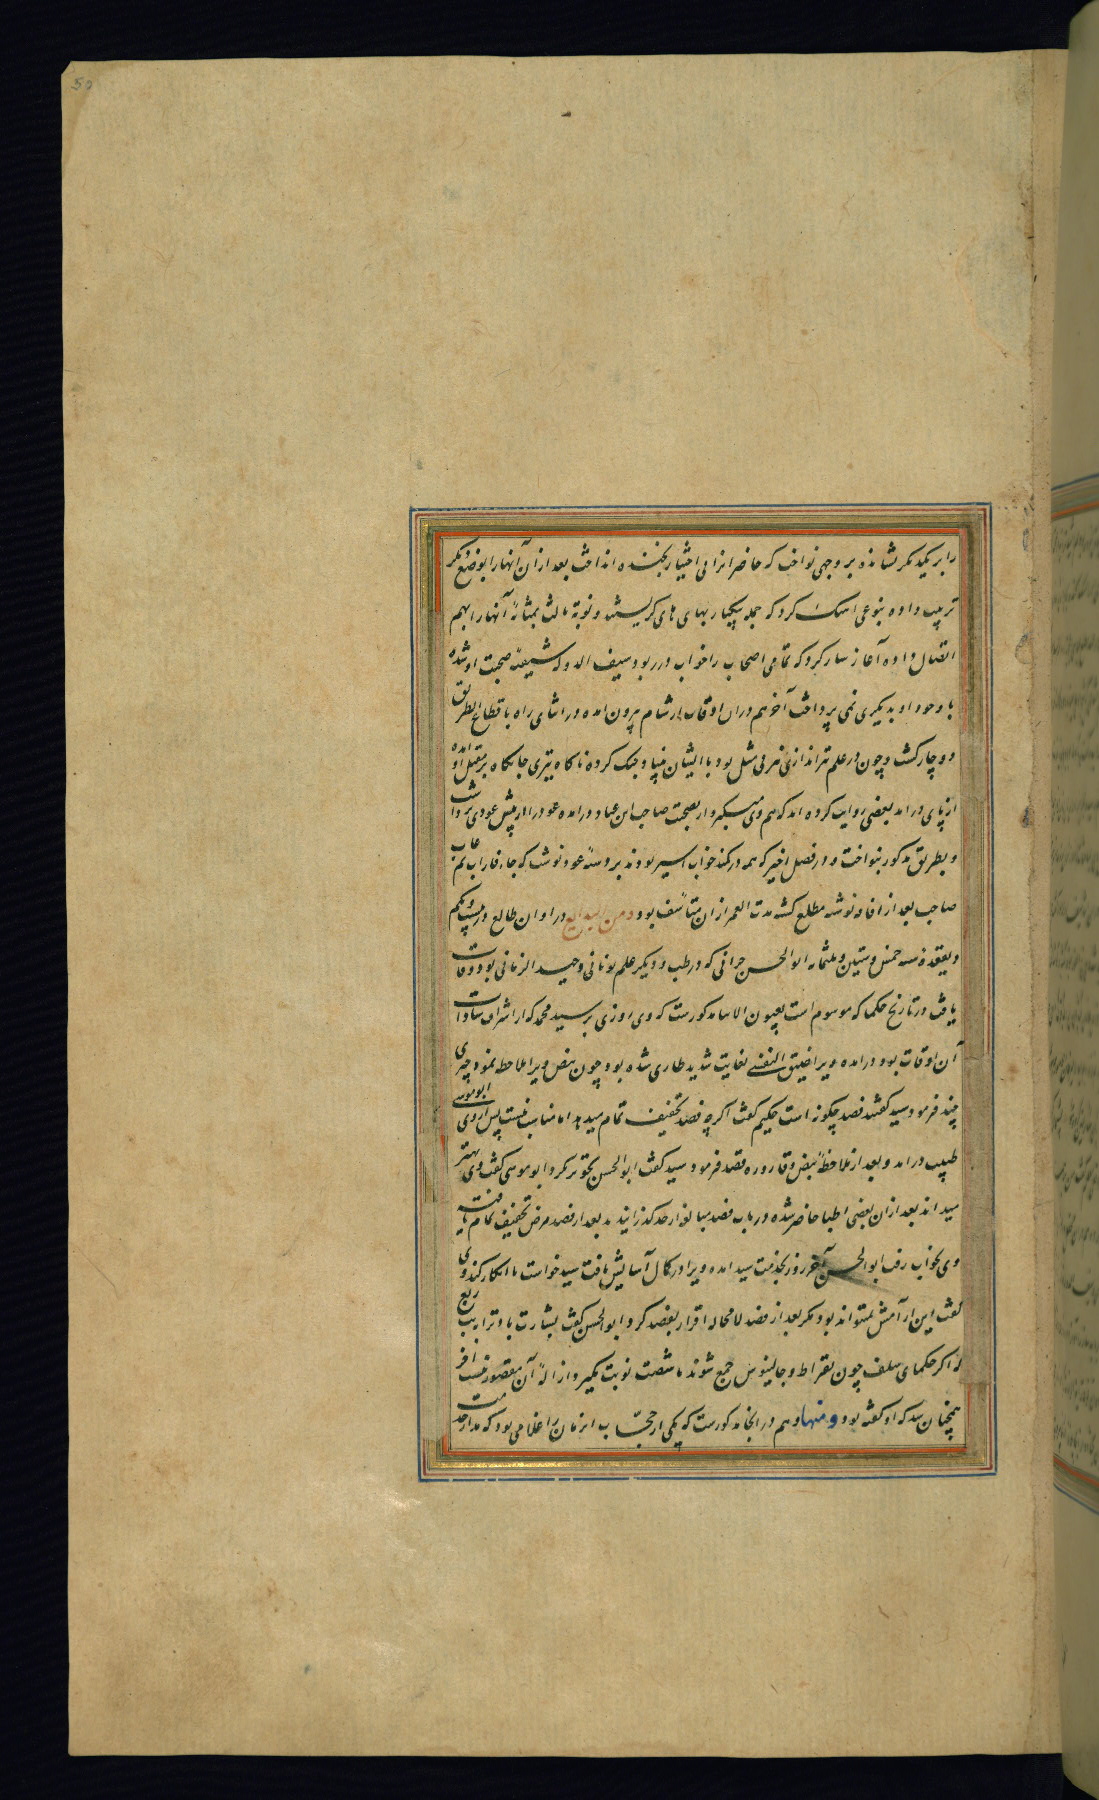 50
را بر یکدیگر نشانده بر وجهی نواخت که حاضرانرا بی اختیار بخنده انداخت بعد ازان آنها را بوضع دیگر
ترتیب داده بنوعی اهنک کرد که جمله بیکبار بهای های کریستند و نوبه ثالث بمثابهٔ آنها را بهم
اتصال داده آغاز ساز کرد که تمامی اصحاب را خواب در ربود و سیف الدوله شیفتهٔ صحبت او شده
با وجود او بدیکری نمی پرداخت آخر هم دران اوقات از شام بیرون امده در اثنای راه با قطاع الطریق
دوچار کشت و چون در علم تیراندازی نیز بی مثل بود با ایشان بنیاد جنک کرده ناکاه تیری جانکاه بر مقتل او امده
از پای در امد بعضی روایت کرده اند که هم وی بصحبت صاحب ابن عباد در امده عود را از پیش عودی برداشت
و بطریق مذکور بنواخت و در فصل اخیر که همه در کمند خواب اسیر بودند بر دستهٔ عود نوشت که جاء فاراب ثم غاب
صاحب بعد از افاقه نوشته مطلع کشته مدت العمر ازان متأسف بود و من البدایع در اوان طالع در بیست و یکم
ذیقعدهٔ سنه خمس و ستین و ثلثمائه ابو الحسن حرانی که در طب و دیکر علم یونانی وحید الزمانی بود وفات
یافت در تاریخ حکما که موسوم است بعیون الانبا مذکورست که وی روزی بر سید محمد که از اشراف سادات
آن اوقات بود در امده ویرا ضیق النفسی بغایت شدید طاری شده بود چون نبض ویرا ملاحظه نمود چیزی
چند فرمود سید کفتند فصد چکونه است حکیم کفت اکرچه فصد تخفیف تمام میدهد اما مناسب نیست پس از وی ابو موسی
طبیب در امد و بعد از ملاحظهٔ نبض و قاروره فصد فرمود سید کفت ابو الحسن تجویز نکرد ابو موسی کفت وی بهتر
میداند بعد ازان بعضی اطبا حاضر شده در باب فصد مبالغه از حد کذرانیدند بعد از فصد مرض تخفیف تمام یافته
وی بخواب رفت ابو الحسن آخر روز بخدمت سید امده ویرا در کمال آسایش یافت سید خواست تا انکار کند وی
کفت این آرامش نمیتواند بود مکر بعد از فصد لا محاله اقرار بفصد کرد ابو الحسن کفت بشارت باد ترا بتب ربع
که اکر حکمای سلف چون بقراط و جالینوس جمع شوند تا شصت نوبت نکیرد ازالهٔ آن مقصور نیست اخر
همچنان شد که او کفته بود و منها و هم در انجا مذکورست که یکی از حجّاب انزمان را غلامی بود که مدار خدمت